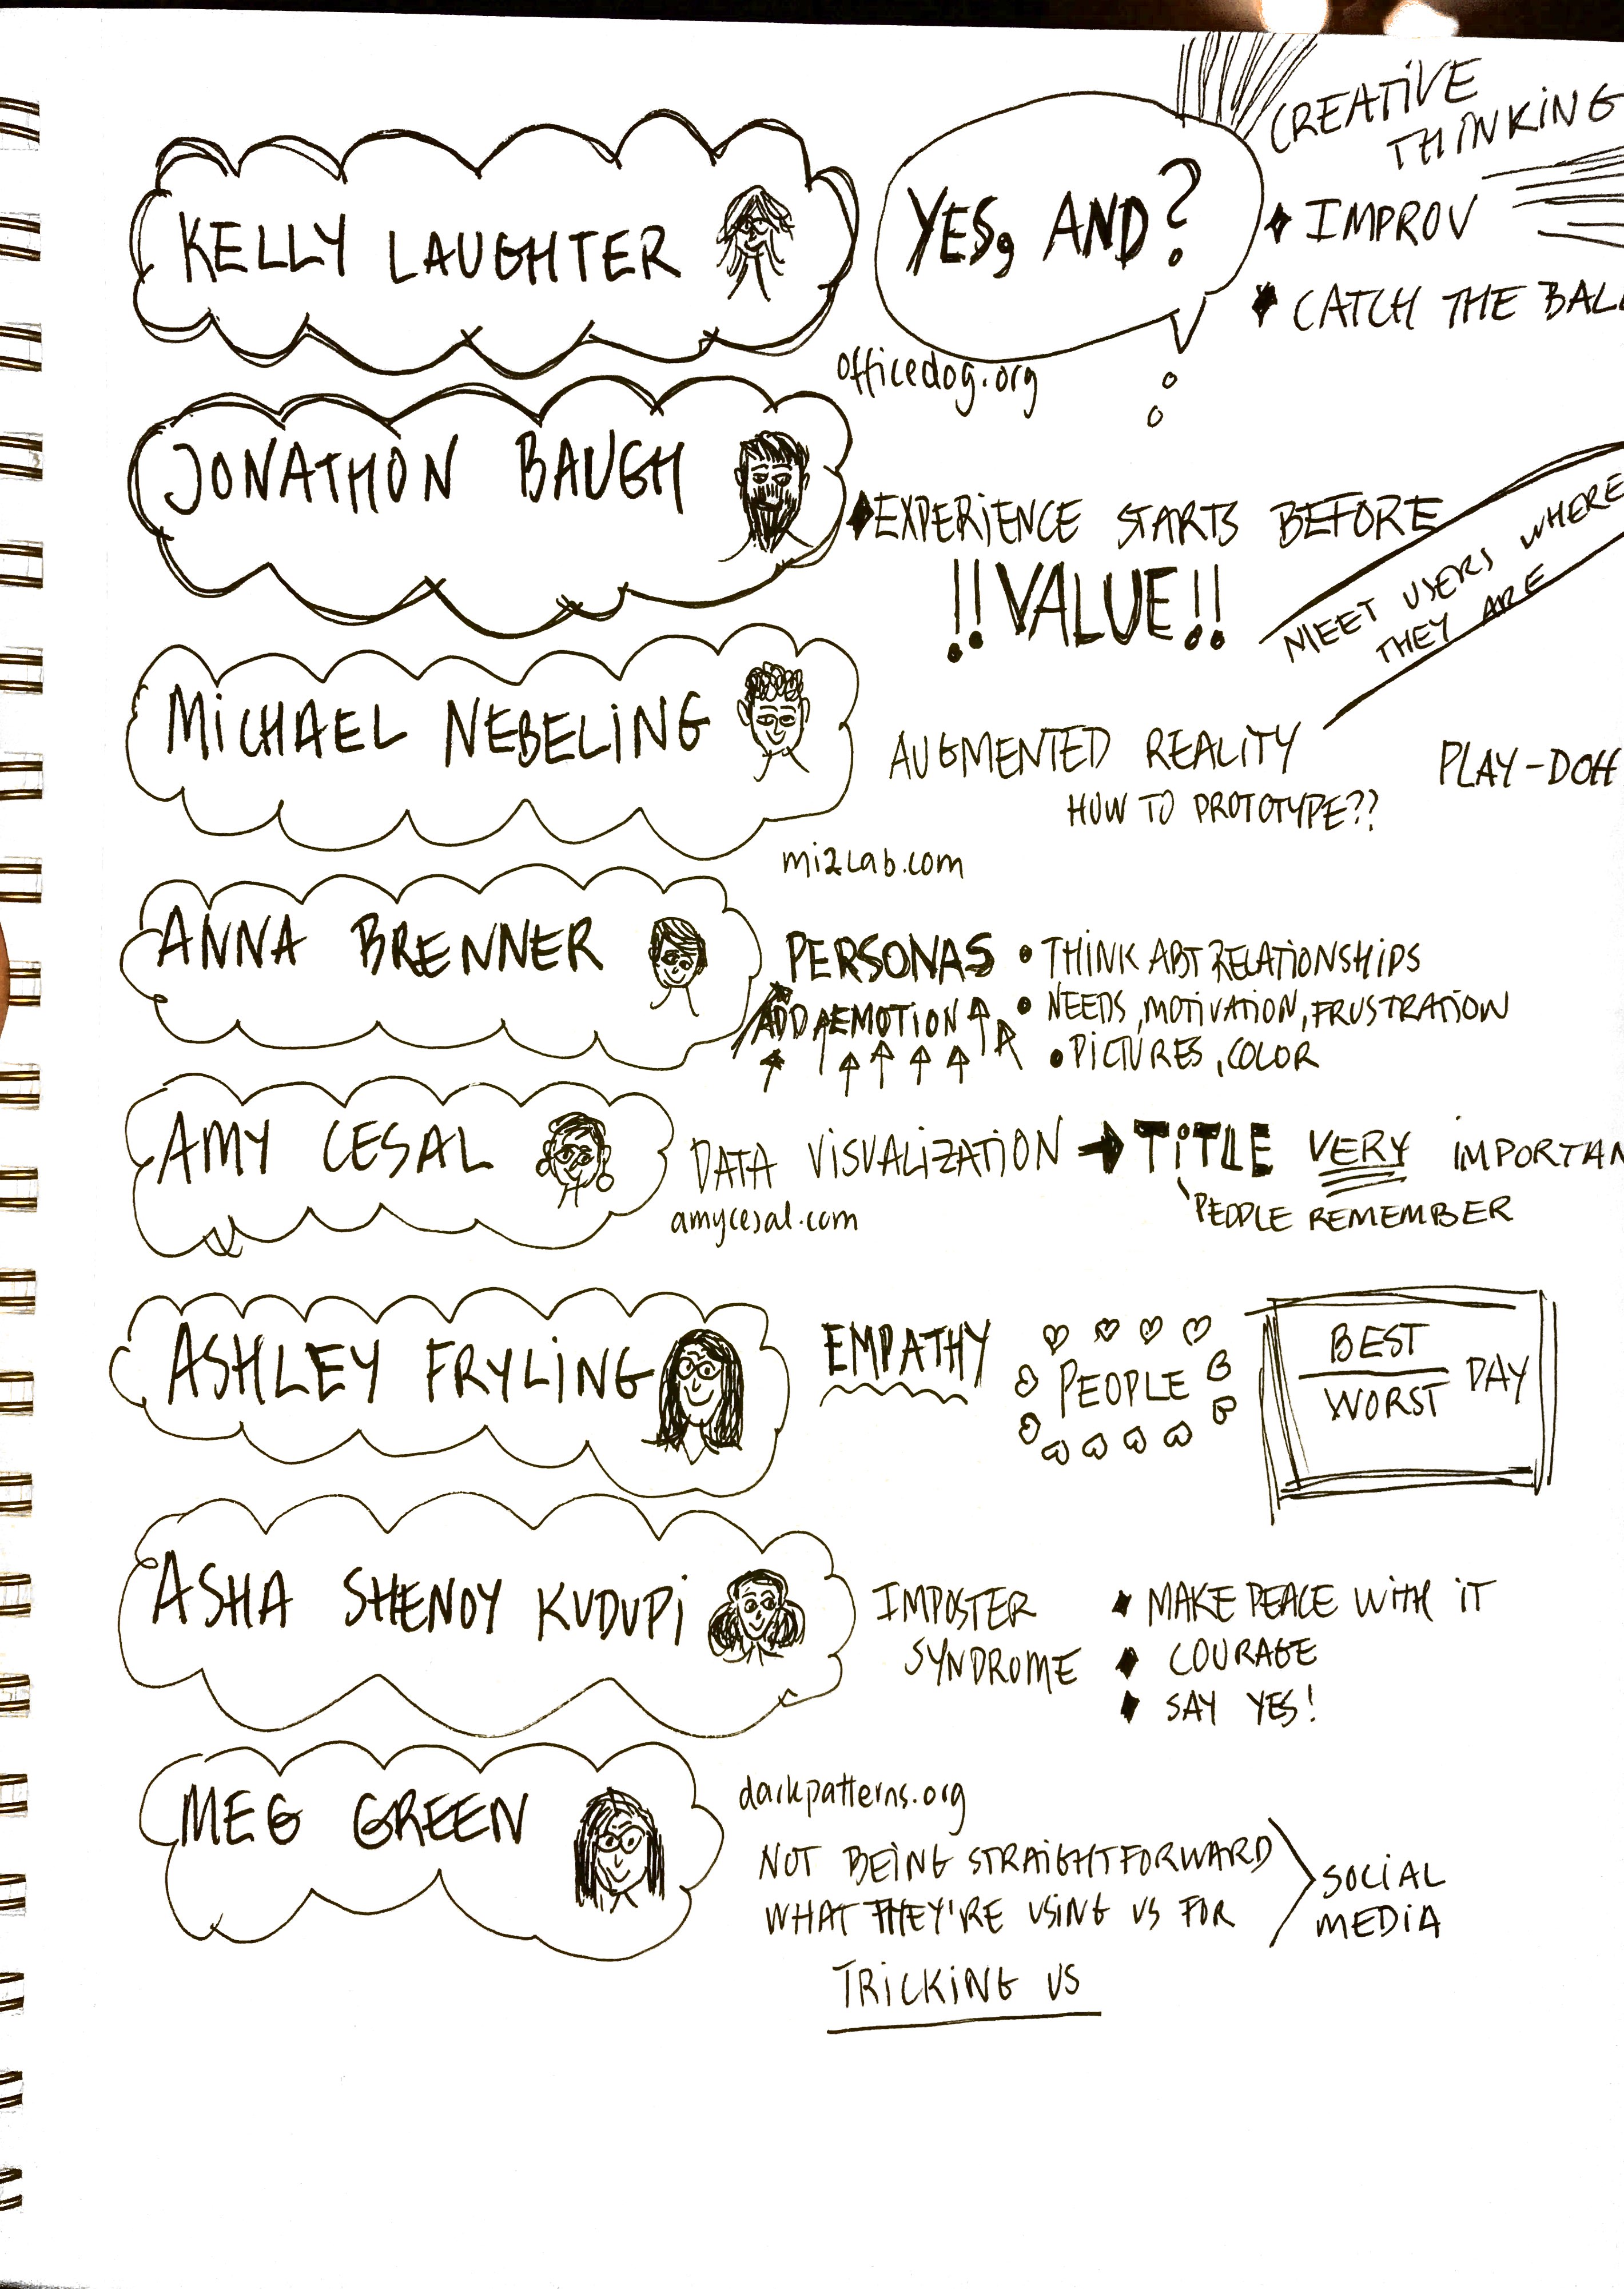 CREATIVE
THINKING
KELLY LAUGHTER
YES, AND?
IMPROV
CATCH THE BAL
officedog.org
JONATHON BAUGH
EXPERIENCE STARTS BEFORE
!!VALUE!!
MEET USERS WHERE
THEY ARE
MICHAEL NEBELING
AUGMENTED REALITY
HOW TO PROTOTYPE??
PLAY-DOH
mi2lab.com
ANNA BRENNER
PERSONAS
ADD EMOTION
• THINK ABT RELATIONSHIPS
• NEEDS, MOTIVATION, FRUSTRATION
• PICTURES, COLOR
AMY CESAL
DATA VISUALIZATION → TITLE VERY IMPORTAN
PEOPLE REMEMBER
amycesal.com
ASHLEY FRYLING
EMPATHY
PEOPLE
BEST
WORST DAY
ASHA SHENOY KUDUPI
IMPOSTER
SYNDROME
MAKE PEACE WITH IT
COURAGE
SAY YES!
MEG GREEN
darkpatterns.org
NOT BEING STRAIGHTFORWARD
WHAT THEY'RE USING US FOR
SOCIAL
MEDIA
TRICKING US